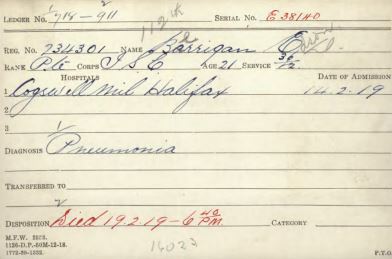 LEDGER No. 718-911 SERIAL No. E 38140
112th
REG. No. 734301 NAME Barrigan C.
RANK Pte CORPS AGE 21 SERVICE 36/12
HOSPITALS DATE OF ADMISSION
1 Cogswell Mil Halifax 14.2.19
2
3
DIAGNOSIS Pneumonia
TRANSFERRED TO
DISPOSITION Died 19.2.19-6 40 P.M. CATEGORY
M.F.W. 2553.
1126-D.P.-50M-12-18.
1772-39-1332. P.T.O.
16023